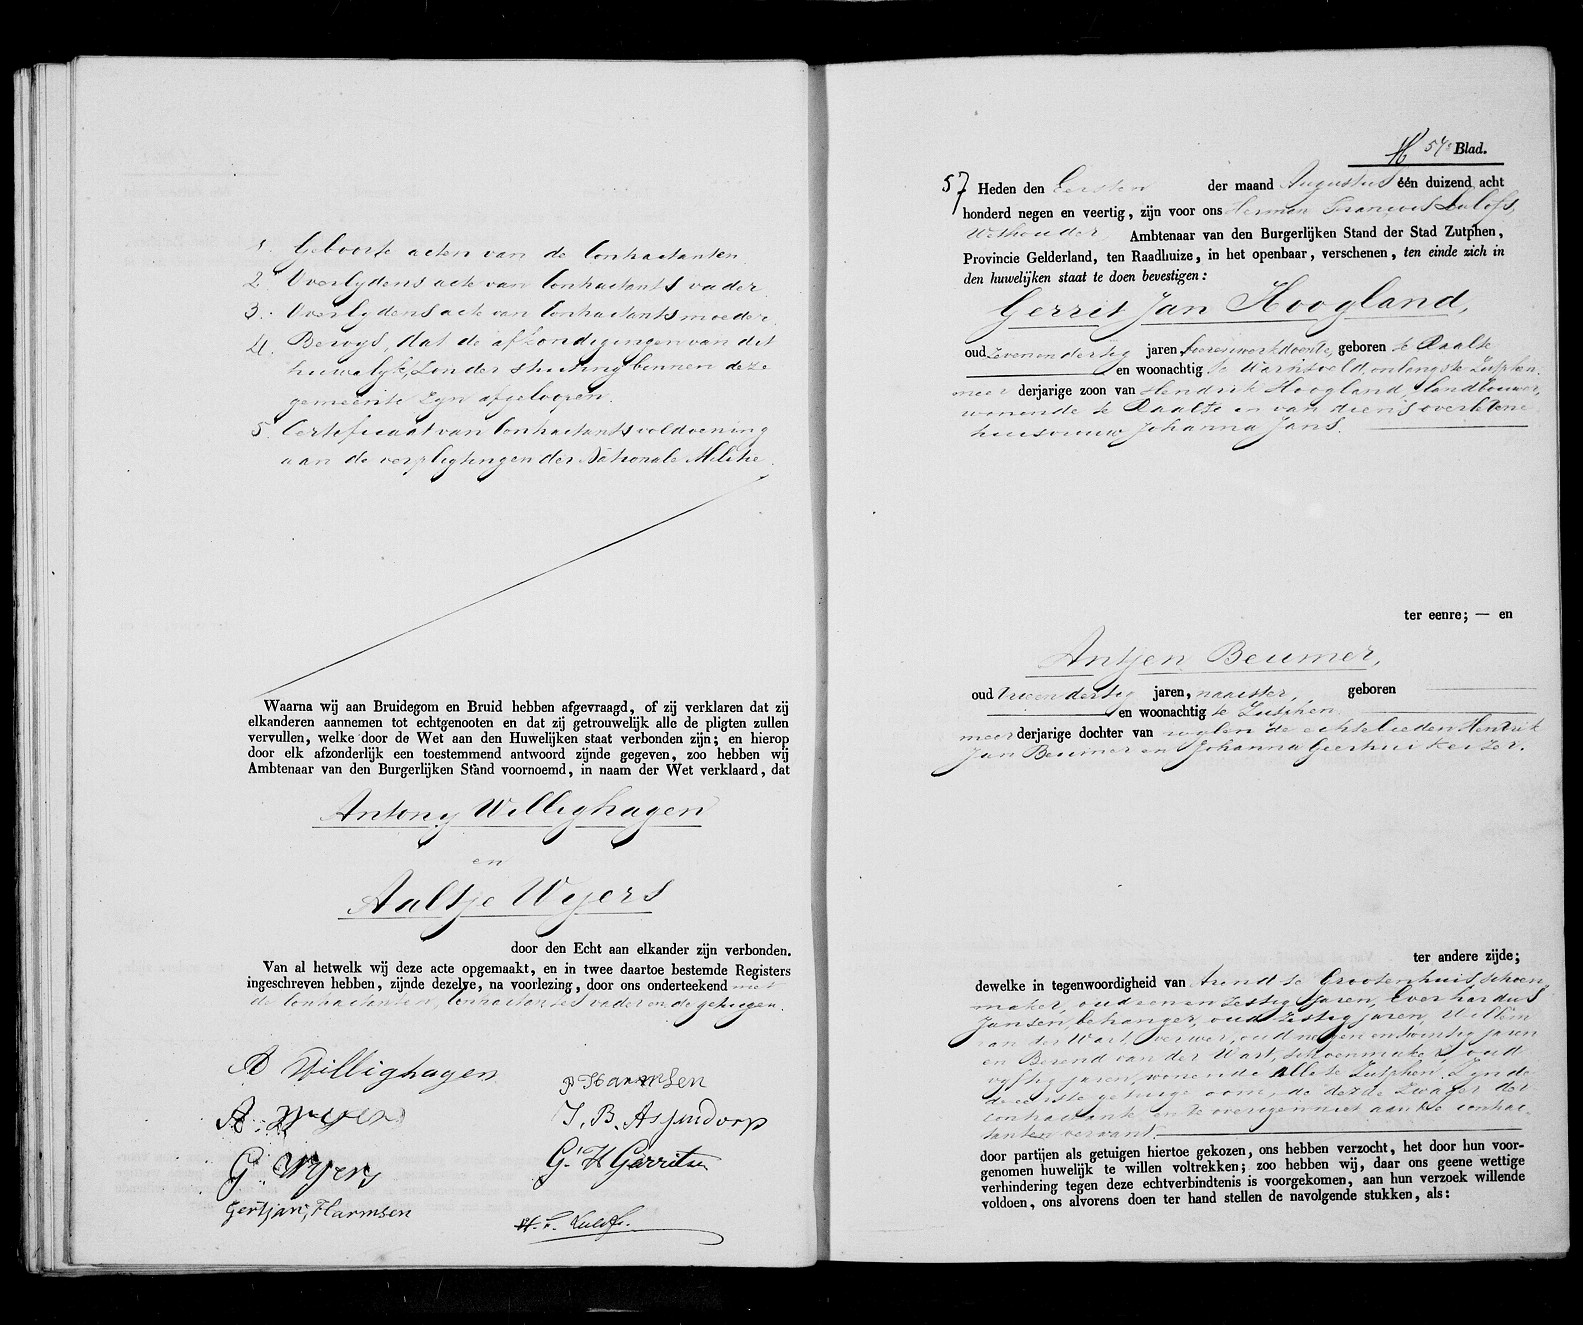 1. Geboorte acten van de Contractanten
2. Overlydens acte van Contractants vader
3. Overlydens acte van Contractants moeder
4. Bewys, dat de afkondigingen van dit
huwelyk, zonder stuiting binnen deze
gemeente zyn afgeloopen.
5. Certificaat van Contractants voldoening
aan de verpligtingen der Nationale Militie
Waarna wij aan Bruidegom en Bruid hebben afgevraagd, of zij verklaren dat zij
elkanderen aannemen tot echtgenooten en dat zij getrouwelijk alle de pligten zullen
vervullen, welke door de Wet aan den Huwelijken staat verbonden zijn; en hierop
door elk afzonderlijk een toestemmend antwoord zijnde gegeven, zoo hebben wij
Ambtenaar van den Burgerlijken Stand voornoemd, in naam der Wet verklaard, dat
Antony Willighagen
en
Aaltje Wyers
door den Echt aan elkander zijn verbonden.
Van al hetwelk wij deze acte opgemaakt, en in twee daartoe bestemde Registers
ingeschreven hebben, zijnde dezelve, na voorlezing, door ons onderteekend met
de Contractanten, Contractantes vader en de getuigen.
A Willighagen
A. Wyers
G Wyers
Gertjan Harmsen
P Harmsen
J. B. Aspendorp
G. H Garritsen
H. F. Lulofs.
57e Blad.
57 Heden den Eersten der maand Augustus één duizend acht
honderd negen en veertig, zijn voor ons Herman François Lulofs,
Wethouder, Ambtenaar van den Burgerlijken Stand der Stad Zutphen,
Provincie Gelderland, ten Raadhuize, in het openbaar, verschenen, ten einde zich in
den huwelijken staat te doen bevestigen:
Gerrit Jan Hoogland,
oud zevenendertig jaren, boerenwerkdoende, geboren te Raalte
en woonachtig te Warnsveld onlangs te Zutphen
meerderjarige zoon van Hendrik Hoogland, landbouwer,
wonende te Raalte en van diens overledene
huisvrouw Johanna Jans.
ter eenre; — en
Antjen Beumer,
oud tweendertig jaren, naaister, geboren
en woonachtig te Zutphen,
meerderjarige dochter van wylen de echtelieden Hendrik
Jan Beumer en Johanna Geertrui Keizer.
ter andere zijde;
dewelke in tegenwoordigheid van Arend te Grootenhuis, schoen-
maker, oud eenenzestig jaren, Everhardus
Jansen, behanger, oud zestig jaren, Willem
van der Wart, verwer, oud negen en twintig jaren
en Berend van der Wart, schoenmaker, oud
vyftig jaren, wonende allen te Zutphen. Zynde
de eerste getuige oom, de derde zwager der
contractante en de overigen niet aan de contrac-
tanten verwant.
door partijen als getuigen hiertoe gekozen, ons hebben verzocht, het door hun voor-
genomen huwelijk te willen voltrekken; zoo hebben wij, daar ons geene wettige
verhindering tegen deze echtverbindtenis is voorgekomen, aan hun verzoek willende
voldoen, ons alvorens doen ter hand stellen de navolgende stukken, als: